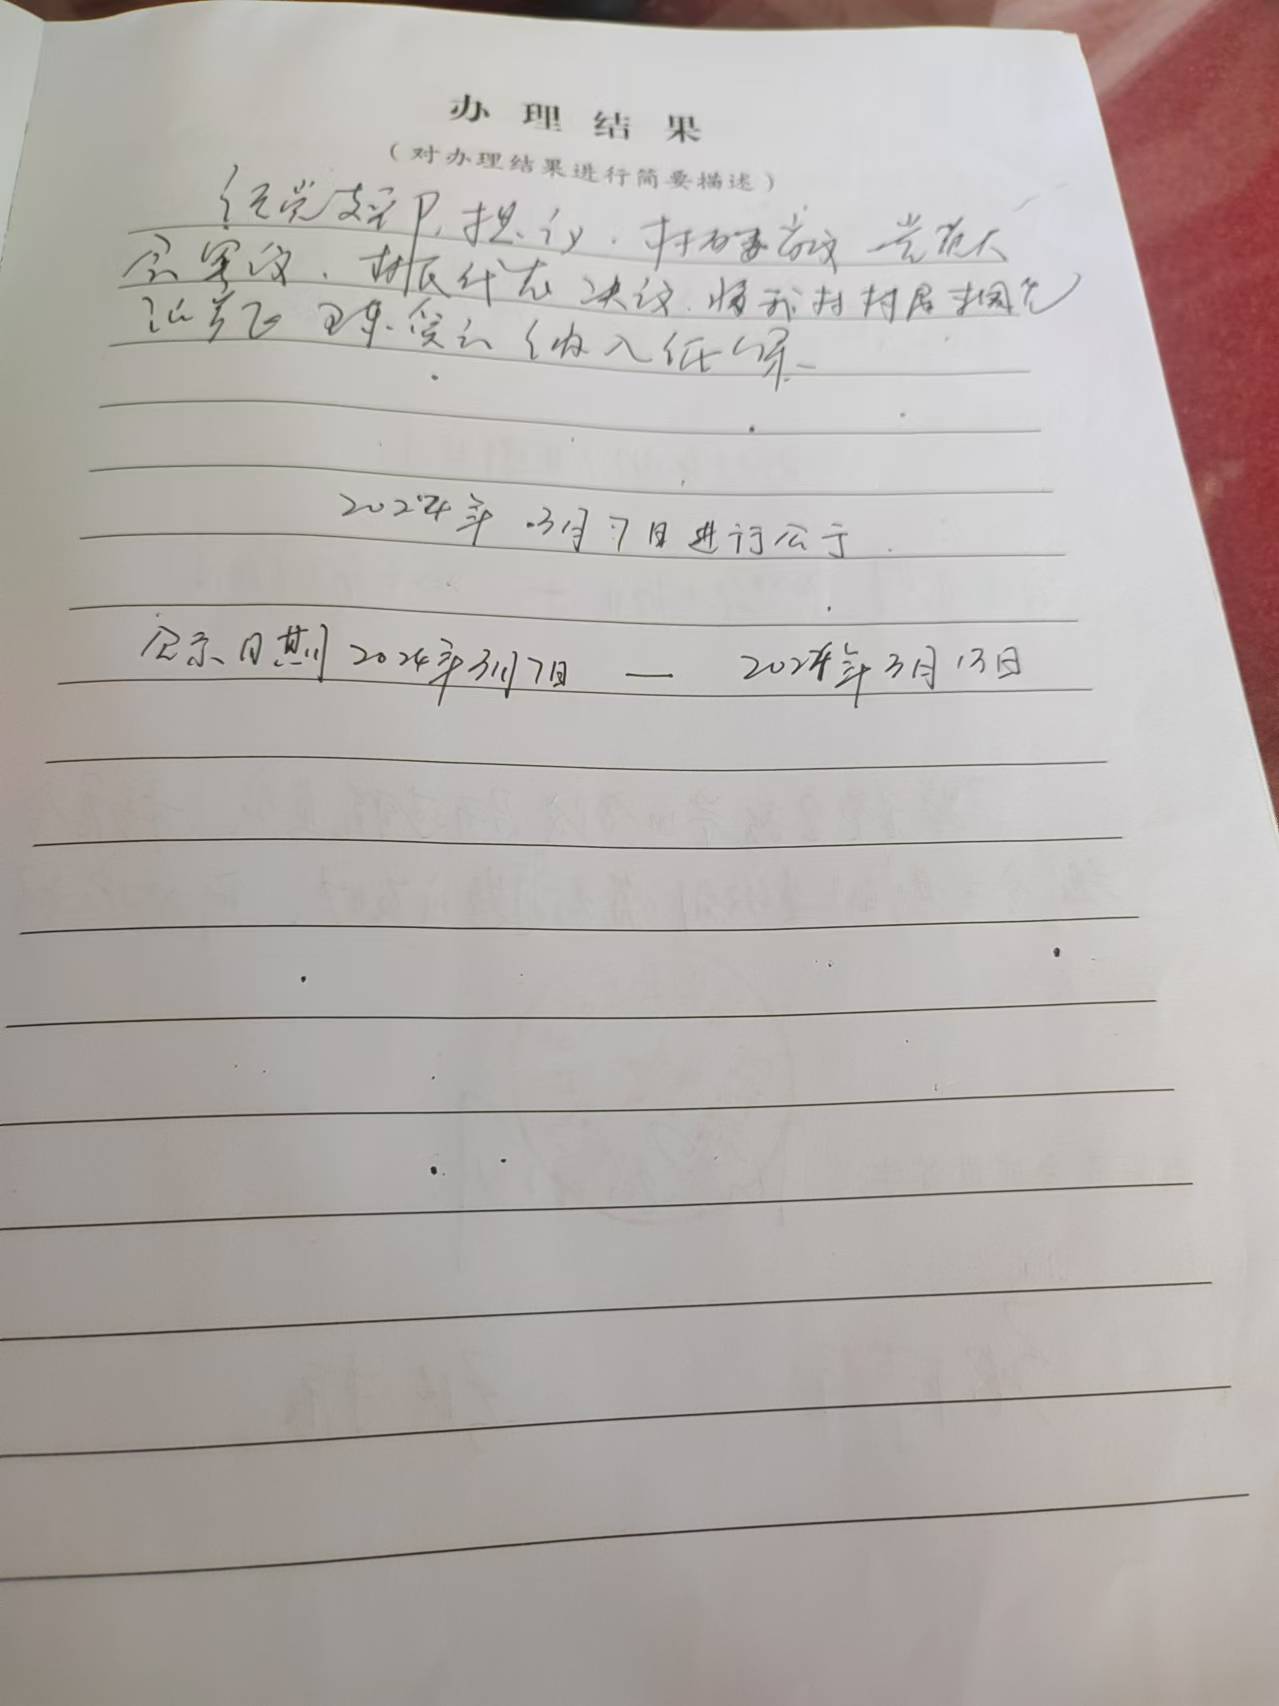 办理结果
（对办理结果进行简要描述）
经党支部提议.村两委商议 党员大
会审议.村民代表决议.将我村村居
纳入低保.
2024年3月7日进行公示
公示日期2024年3月7日 — 2024年3月13日